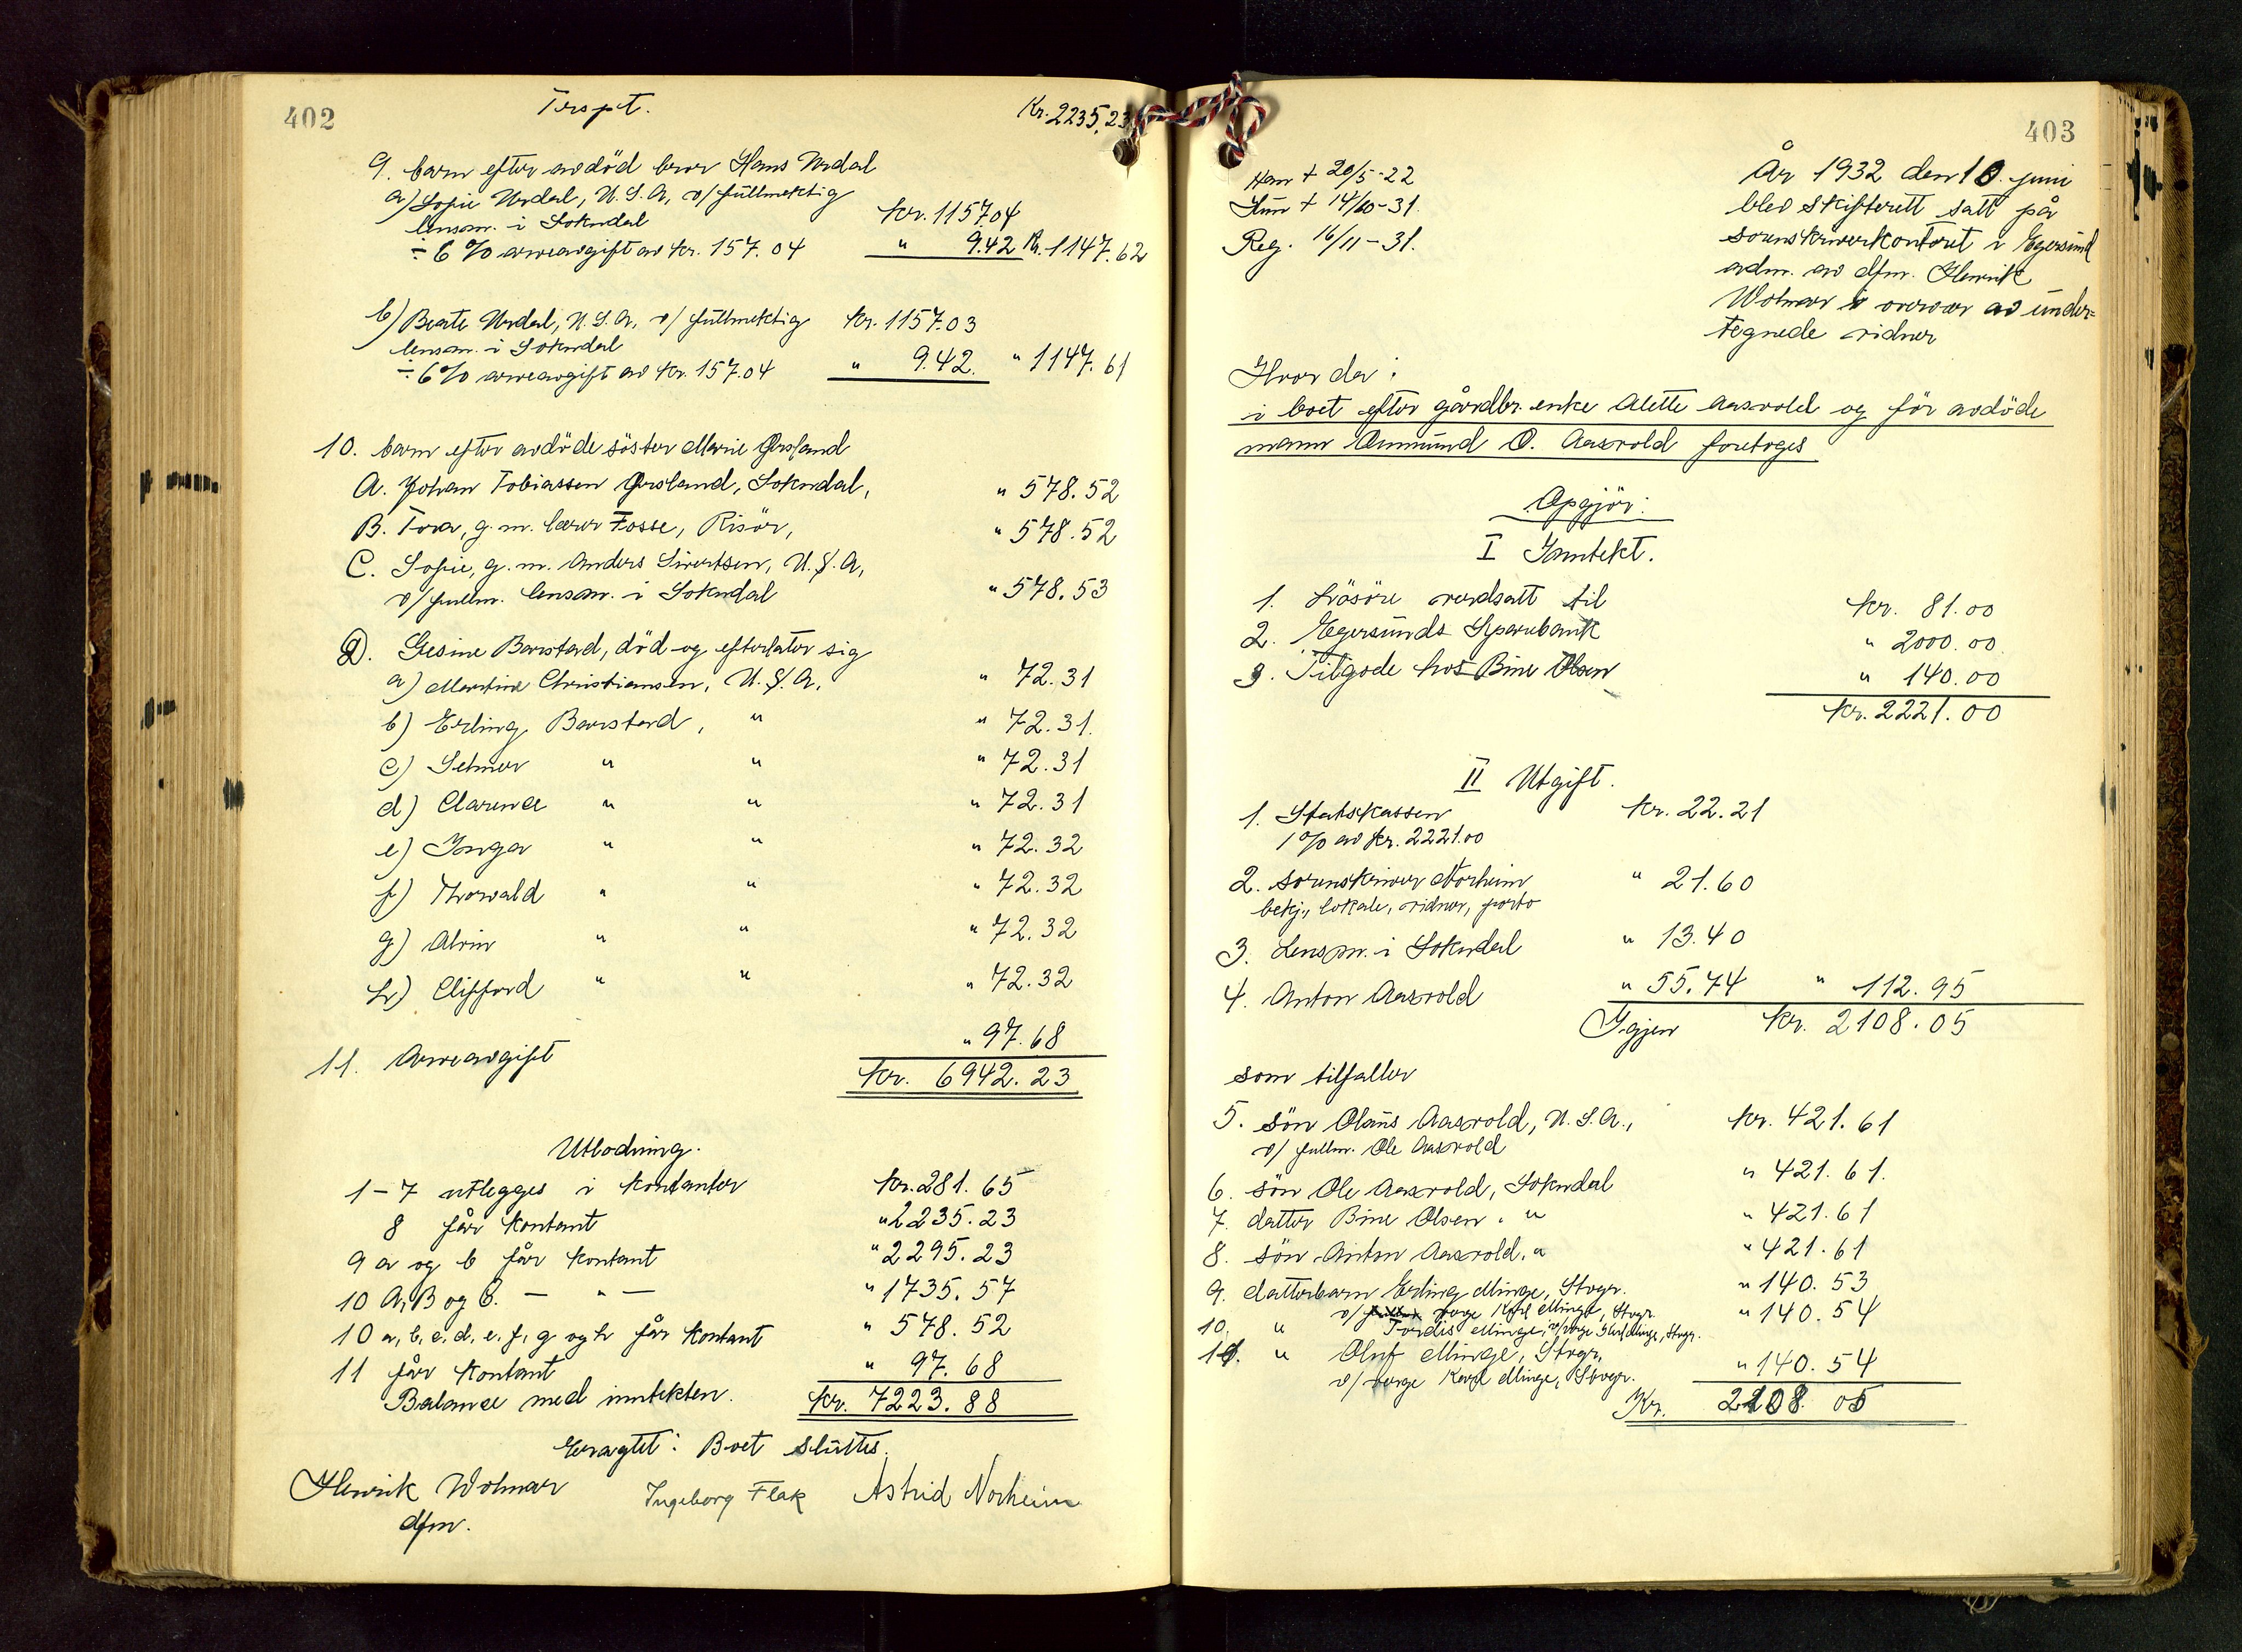 402
Trspt. Kr. 2235,23
9. barn efter avdöd bror Hans Urdal
a) Sofie Urdal, U.S.A, v/ füllmektig
lensm. i Sokndal Kr. 1157.04
÷ 6 % arveavgift av kr. 157.04 " 9.42 Kr. 1147.62
b) Beate Urdal, U.S.A, v/ füllmektig Kr. 1157.03
lensm. i Sokndal
÷ 6% arveavgift av kr. 157.04 " 9.42. " 1147.61
10. barn efter avdöde söster Marie
A. Johan Tobiassen , Sokndal, " 578.52
B. Tora, g.m. lærer Fosse, Risör, " 578.52
C. Sofie, g.m. Anders Sivertsen, U.S.A,
v/ fullm. lensm. i Sokndal " 578.53
D. Gesine Barstad, död og efterlater sig
a) Martine Christiansen, U.S.A. " 72.31
b) Erling Barstad, " " 72.31.
c) Selmer " " " 72.31
d) Clarence " " " 72.31
e) Inga " " " 72.32
f) Thorvald " " " 72.32
g) Alvin " " " 72.32
h) Clifford " " " 72.32
11. Arveavgift " 97.68
Kr. 6942.23
Utlodning.
1-7 utlegges i kontanter Kr. 281.65
8 får kontant " 2235.23
9 a og b får kontant " 2295.23
10 A, B og C. — " — " 1735.57
10 a, b, c, d, e, f, g og h får kontant " 578.52
11 får kontant " 97.68
Balance med inntekten. Kr. 7223.88
Eragtet: Boet slüttes.
Henrik Wolmar Ingeborg Flak Astrid Norheim
dfm.
403
Han + 20/5-22
Hün + 14/10-31.
Reg. 16/11-31.
År 1932 den 10. juni
blev skifterett satt på
sorenskriverkontoret i Egersund
adm. av dfm. Henrik
Wolmar i overvær av under=
tegnede vidner
Hvor da:
i boet efter gårdbr. enke Alette Aasvold og för avdöde
mann Ommund O. Aasvold foretoges
Opgjör:
I Inntekt.
1. Lösöre verdsatt til Kr. 81.00
2. Egersunds Sparebank " 2000.00
3. Tilgode hos Bine Olsen " 140.00
Kr. 2221.00
II Utgift.
1. Statskassen Kr. 22.21
1% av kr. 2221.00
2. sorenskriver Norheim " 21.60
bekj., lokale, vidner, porto
3. Lensm. i Sokndal " 13.40
4. Anton Aasvold " 55.74 " 112.95
Igjen Kr. 2108.05
som tilfaller
5. sön Olaüs Aasvold, U.S.A., Kr. 421.61
v/ fullm. Ole Aasvold
6. sön Ole Aasvold, Sokndal " 421.61.
7. datter Bine Olsen, " " 421.61
8. sön Anton Aasvold, " " 421.61
9. datterbarn Erling Minge, Stvgr. " 140.53
v/ verge Karl Minge, Stvgr.
10. " Tordis Minge, v/ verge Karl Minge, Stvgr. " 140.54
11. " Oluf Minge, Stvgr.
v/ verge Karl Minge, Stvgr. " 140.54
Kr. 2108.05